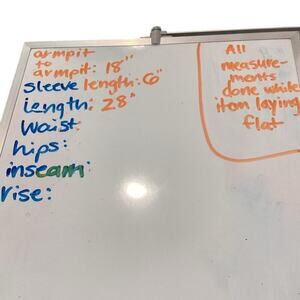 armpit
to
armpit: 18"
sleeve length: 6"
length: 28"
waist:
hips:
inseam:
rise:
All
measure-
ments
done while
item laying
flat